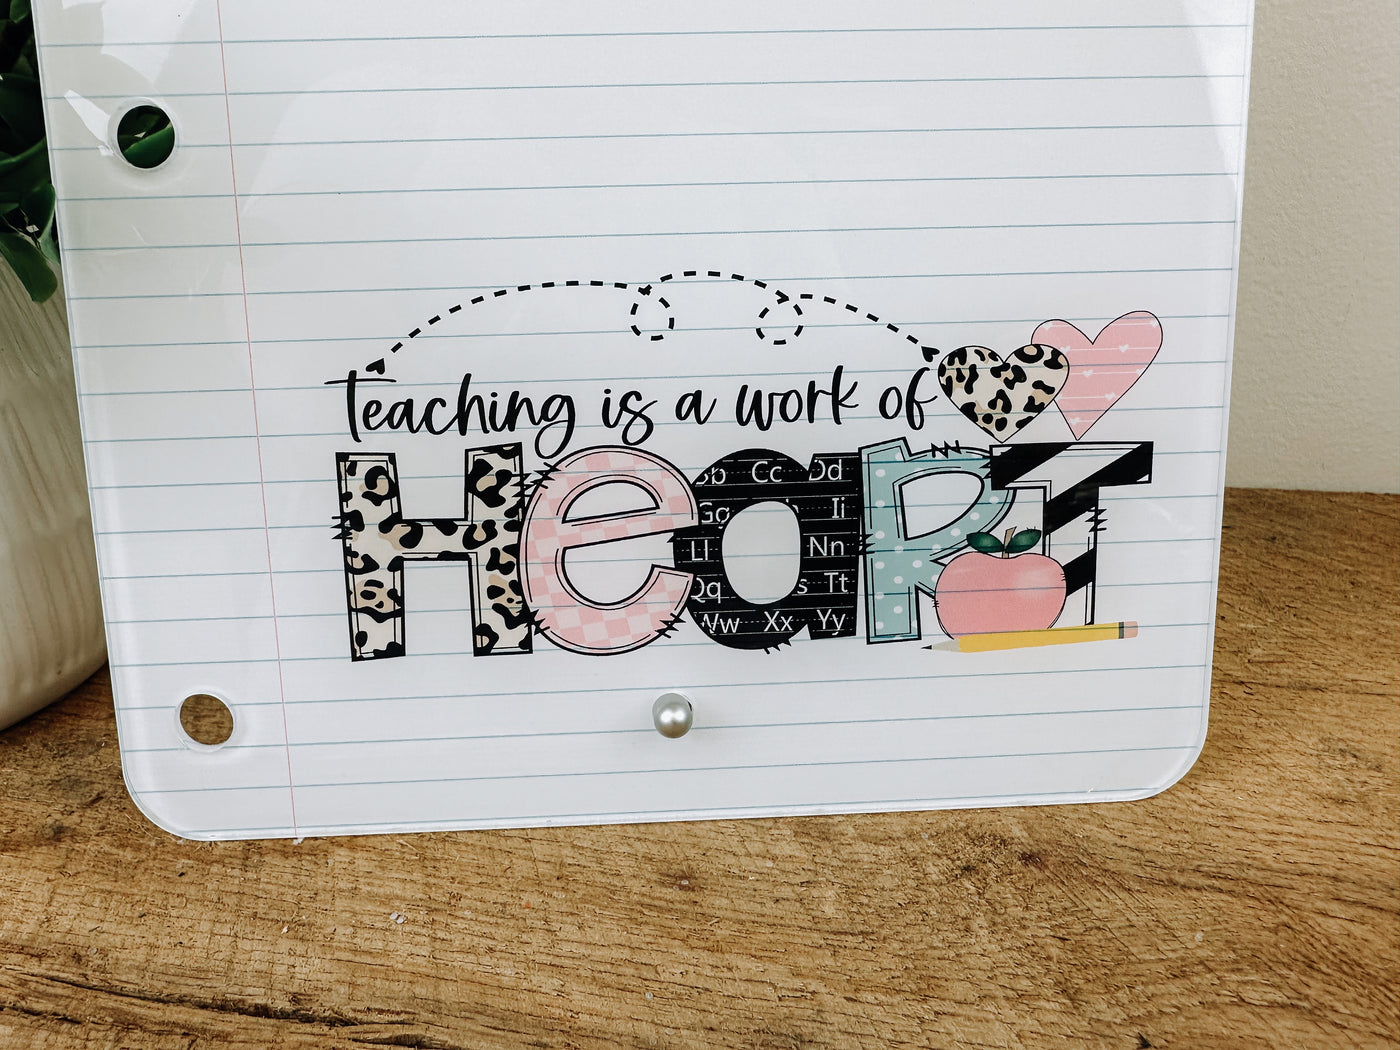 teaching is a work of
HeaRT
Bb Cc Dd
Gg Ii
Ll Nn
Qq s Tt
Ww Xx Yy